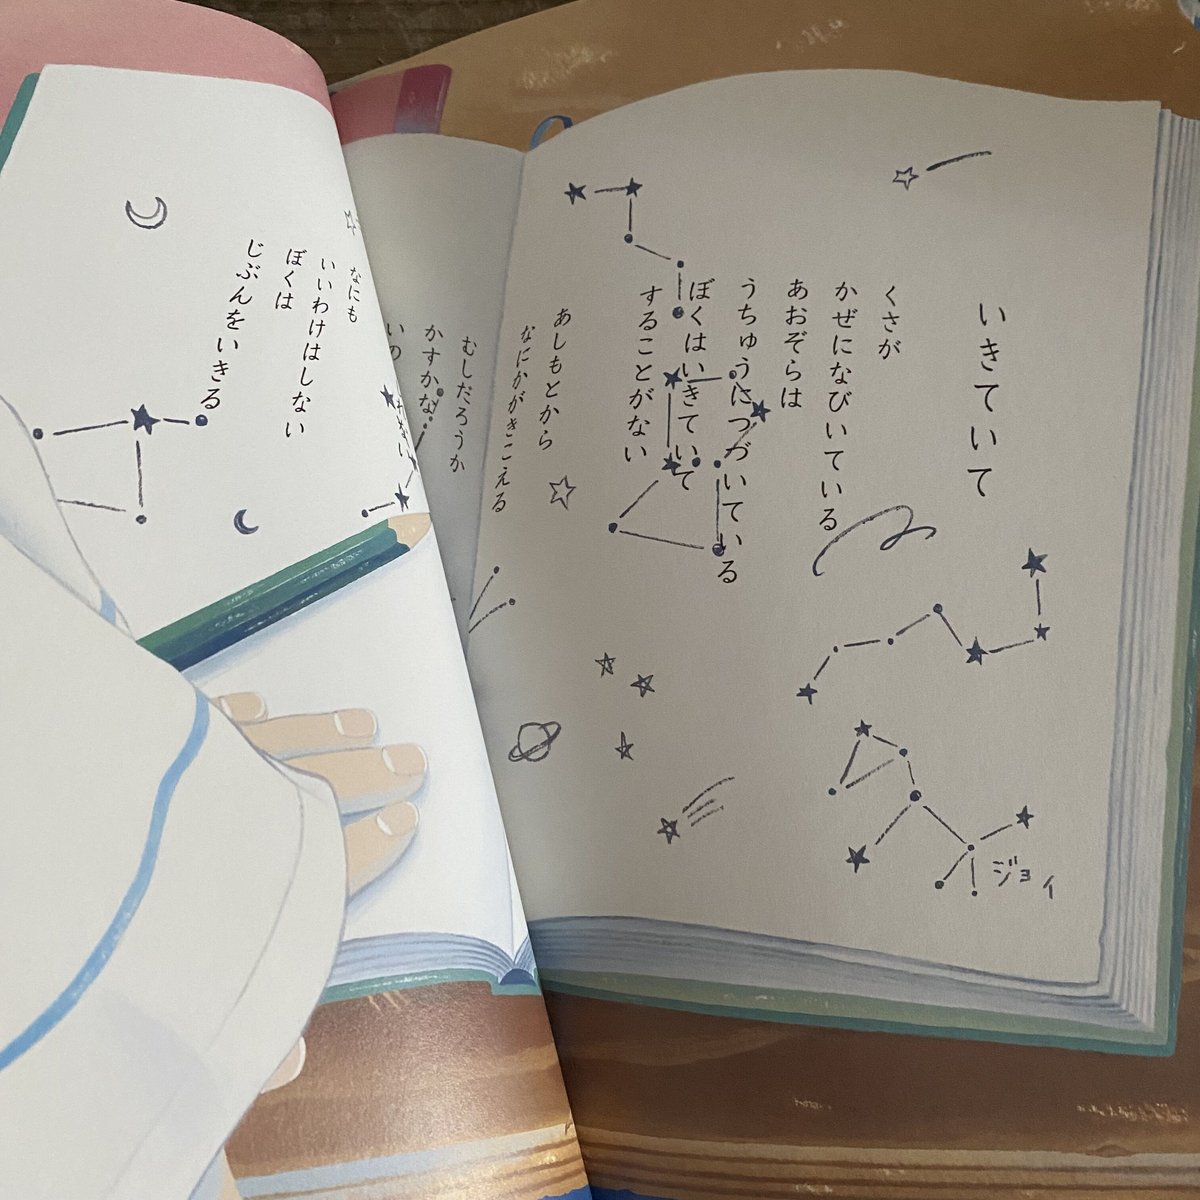 いきていて
くさが
かぜになびいている
あおぞらは
うちゅうにつづいている
ぼくはいきていて
することがない
あしもとから
なにかがきこえる
むしだろうか
かすかな
いの
なにも
いいわけはしない
ぼくは
じぶんをいきる
ジョイ